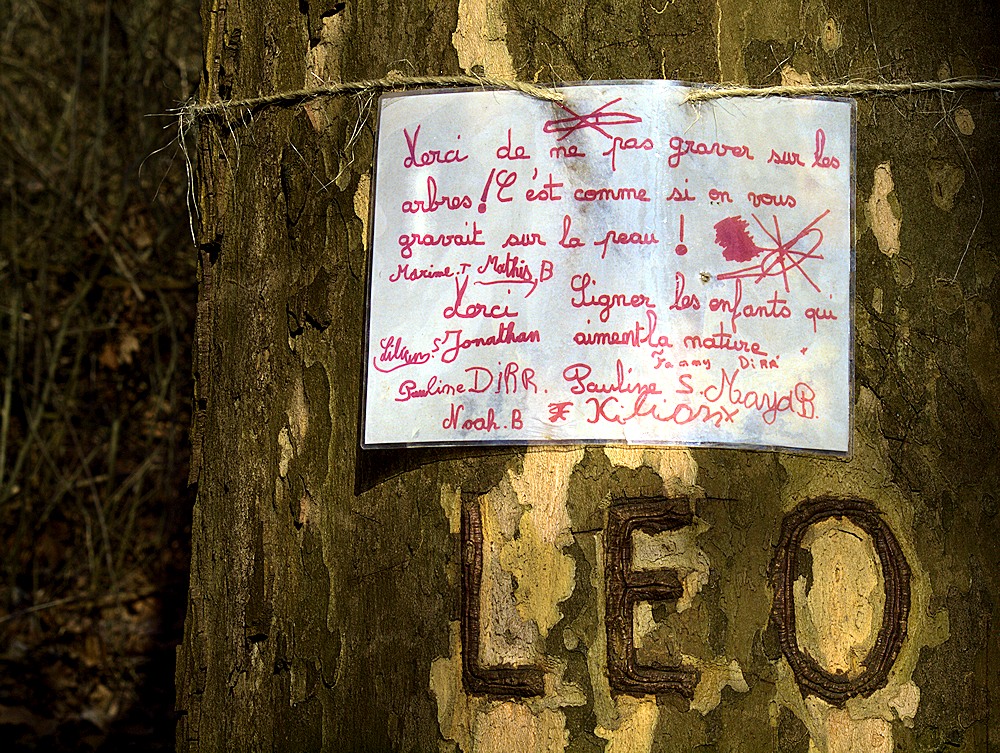 Merci de ne pas graver sur les
arbres! C'est comme si on vous
gravait sur la peau!
Marine.T Mathis.B
Merci Signer les enfants qui
Lilian.S Jonathan aiment la nature
Fanny DiRR
Pauline DiRR. Pauline S. Maya B.
Noah.B Kilian
LEO